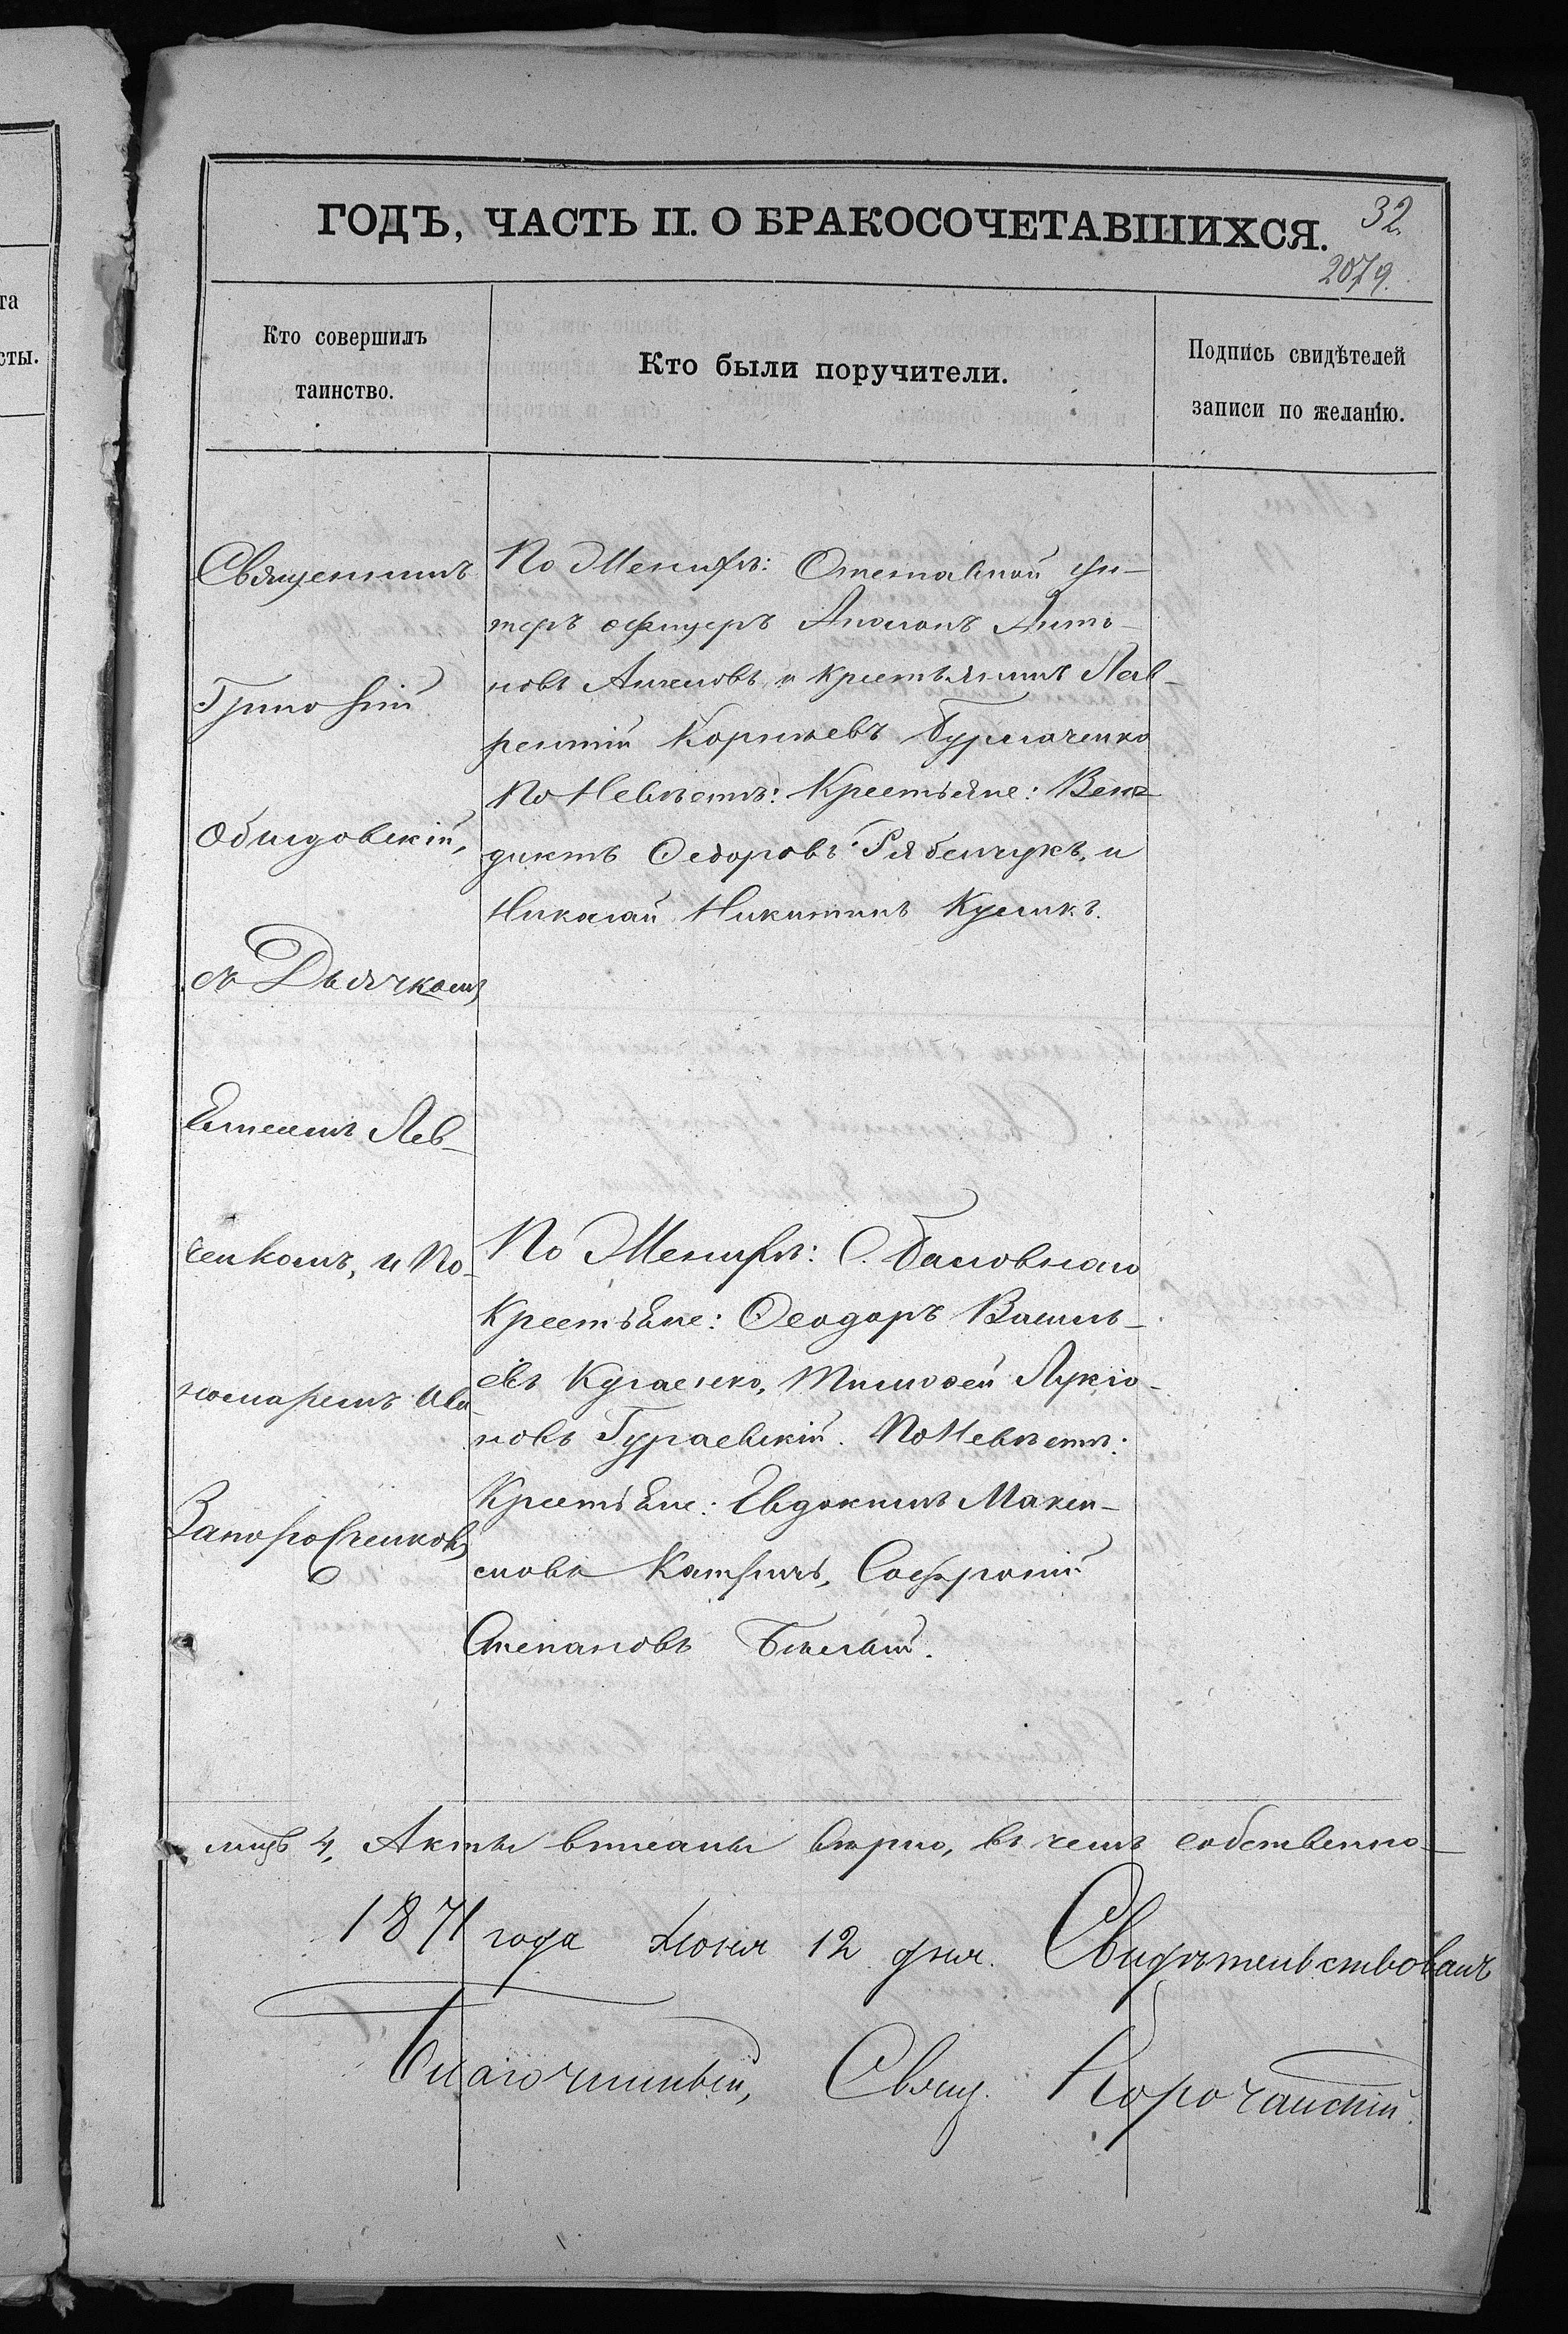 та
сты.
ГОДЪ, ЧАСТЬ II. О БРАКОСОЧЕТАВШИХСЯ.
32.
2079.
Кто совершилъ
таинство.
Кто были поручители.
Подпись свидѣтелей
записи по желанію.
Священникъ
Григорій
Обыдовскій,
съ Дьячкомъ
Еміемъ Лев-
ченкомъ, и По-
номаремъ
Запорожченковъ
По Женихѣ: Отставной ун-
теръ офицеръ Анто-
новъ и крестьянинъ Лав-
рентій Корніевъ Бурлаченко
По Невѣстѣ: Крестьяне: Вене-
диктъ Ѳедоровъ Рябенчукъ, и
Николай Никитинъ Куликъ.
По Женихѣ: С. Баловнаго
Крестьяне: Ѳеодоръ Василь-
евъ Тимофей Лукія-
новъ Гураевскій. По Невѣстѣ:
Крестьяне: Евдокимъ Макси-
мовъ Катричъ, Софроній
Степановъ Бѣлый.
лицъ 4, Акты вписаны вѣрно, въ чемъ собственно-
1871 года Іюня 12 дня. Свидѣтельствовалъ
Благочинный, Свящ. Корочанскій.